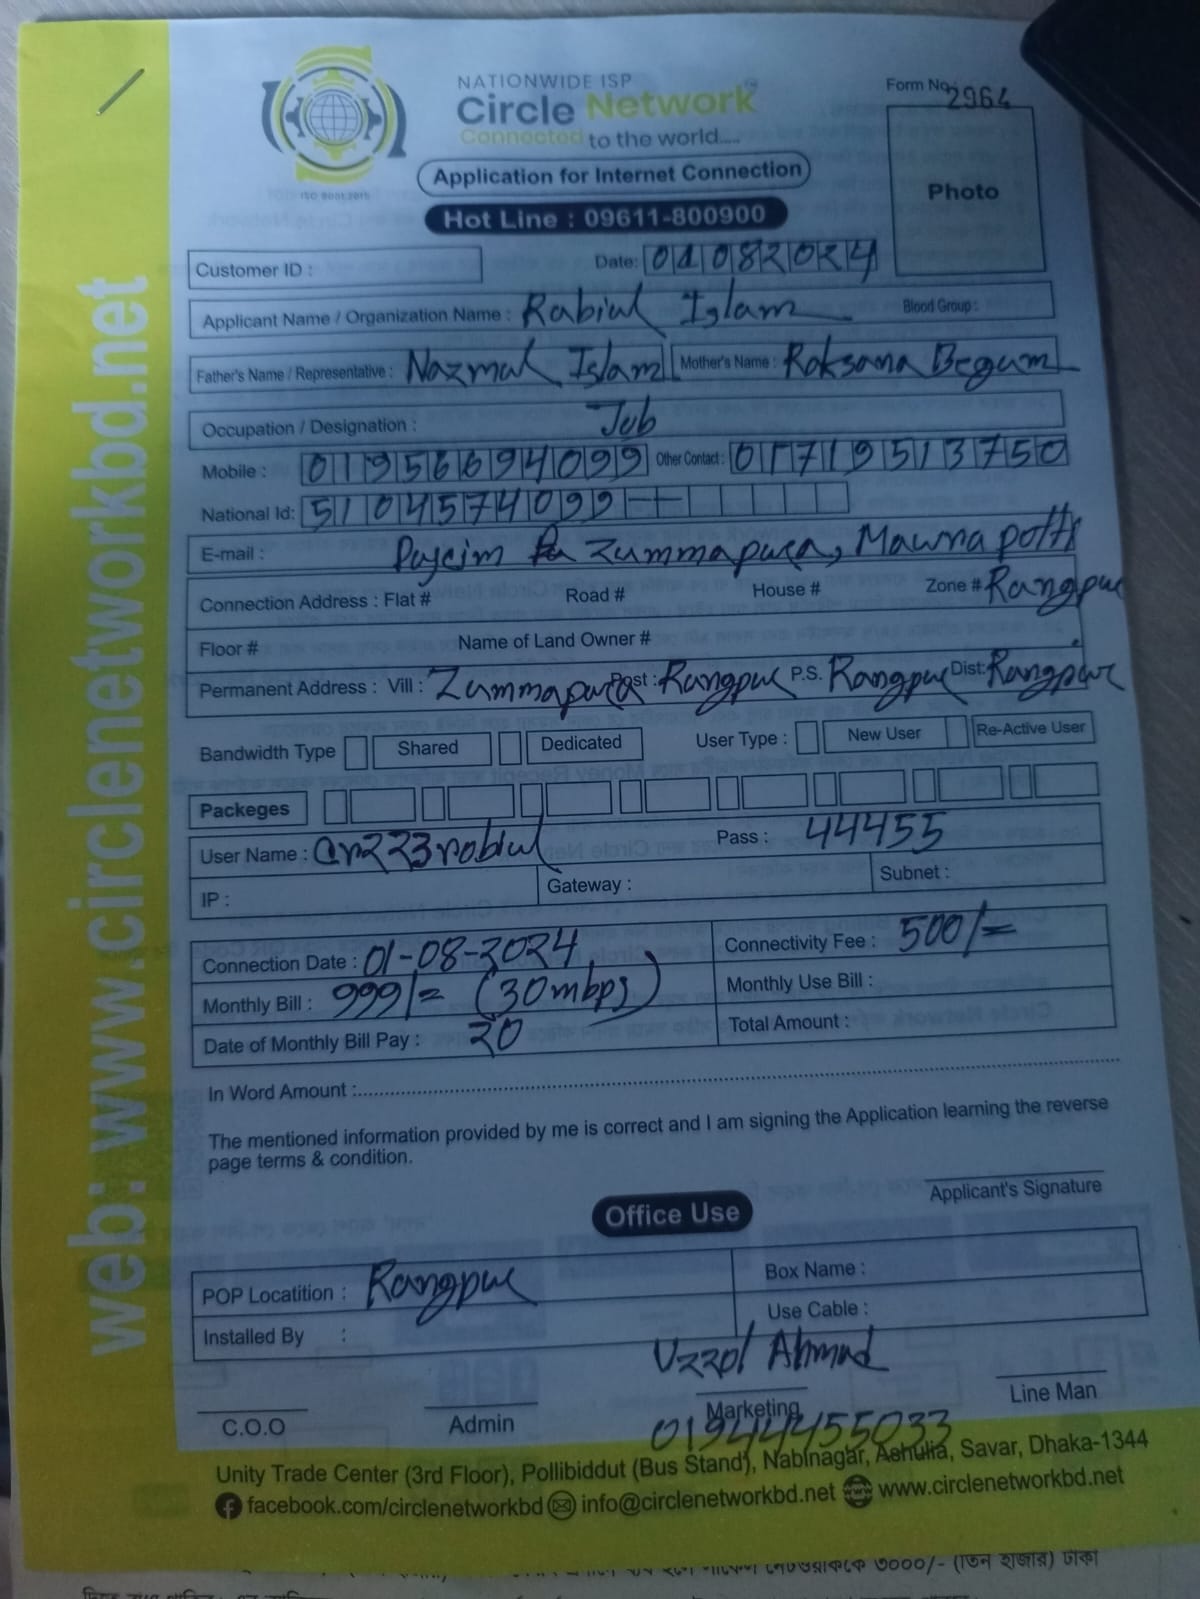 NATIONWIDE ISP
Circle Network
Connected to the world....
ISO 9001:2015
Form No 2964
Application for Internet Connection
Photo
Hot Line : 09611-800900
Customer ID :
Date: 01082024
Applicant Name / Organization Name : Rabiul Islam Blood Group :
Father's Name / Representative : Nazmul Islam Mother's Name : Roksana Begum
Occupation / Designation : Job
Mobile : 01956694099 Other Contact : 01719513750
National Id: 5104574099
E-mail : Zummapara, Mawna potti
Connection Address : Flat # Road # House # Zone # Rangpur
Floor # Name of Land Owner #
Permanent Address : Vill : Zummapara Post : Rangpur P.S. Rangpur Dist: Rangpur
Bandwidth Type Shared Dedicated User Type : New User Re-Active User
Packeges
User Name : cn223robiul Pass : 44455
IP : Gateway : Subnet :
Connection Date : 01-08-2024 Connectivity Fee : 500/=
Monthly Bill : 999/= (30mbps) Monthly Use Bill :
Date of Monthly Bill Pay : 20 Total Amount :
In Word Amount :
The mentioned information provided by me is correct and I am signing the Application learning the reverse
page terms & condition.
Applicant's Signature
Office Use
POP Locatition : Rangpur Box Name :
Installed By : Use Cable :
Uzzol Ahmad
C.O.O Admin Marketing Line Man
01944455033
Unity Trade Center (3rd Floor), Pollibiddut (Bus Stand), Nabinagar, Ashulia, Savar, Dhaka-1344
facebook.com/circlenetworkbd info@circlenetworkbd.net www.circlenetworkbd.net
web: www.circlenetworkbd.net
৩০০০/- (তিন হাজার) টাকা